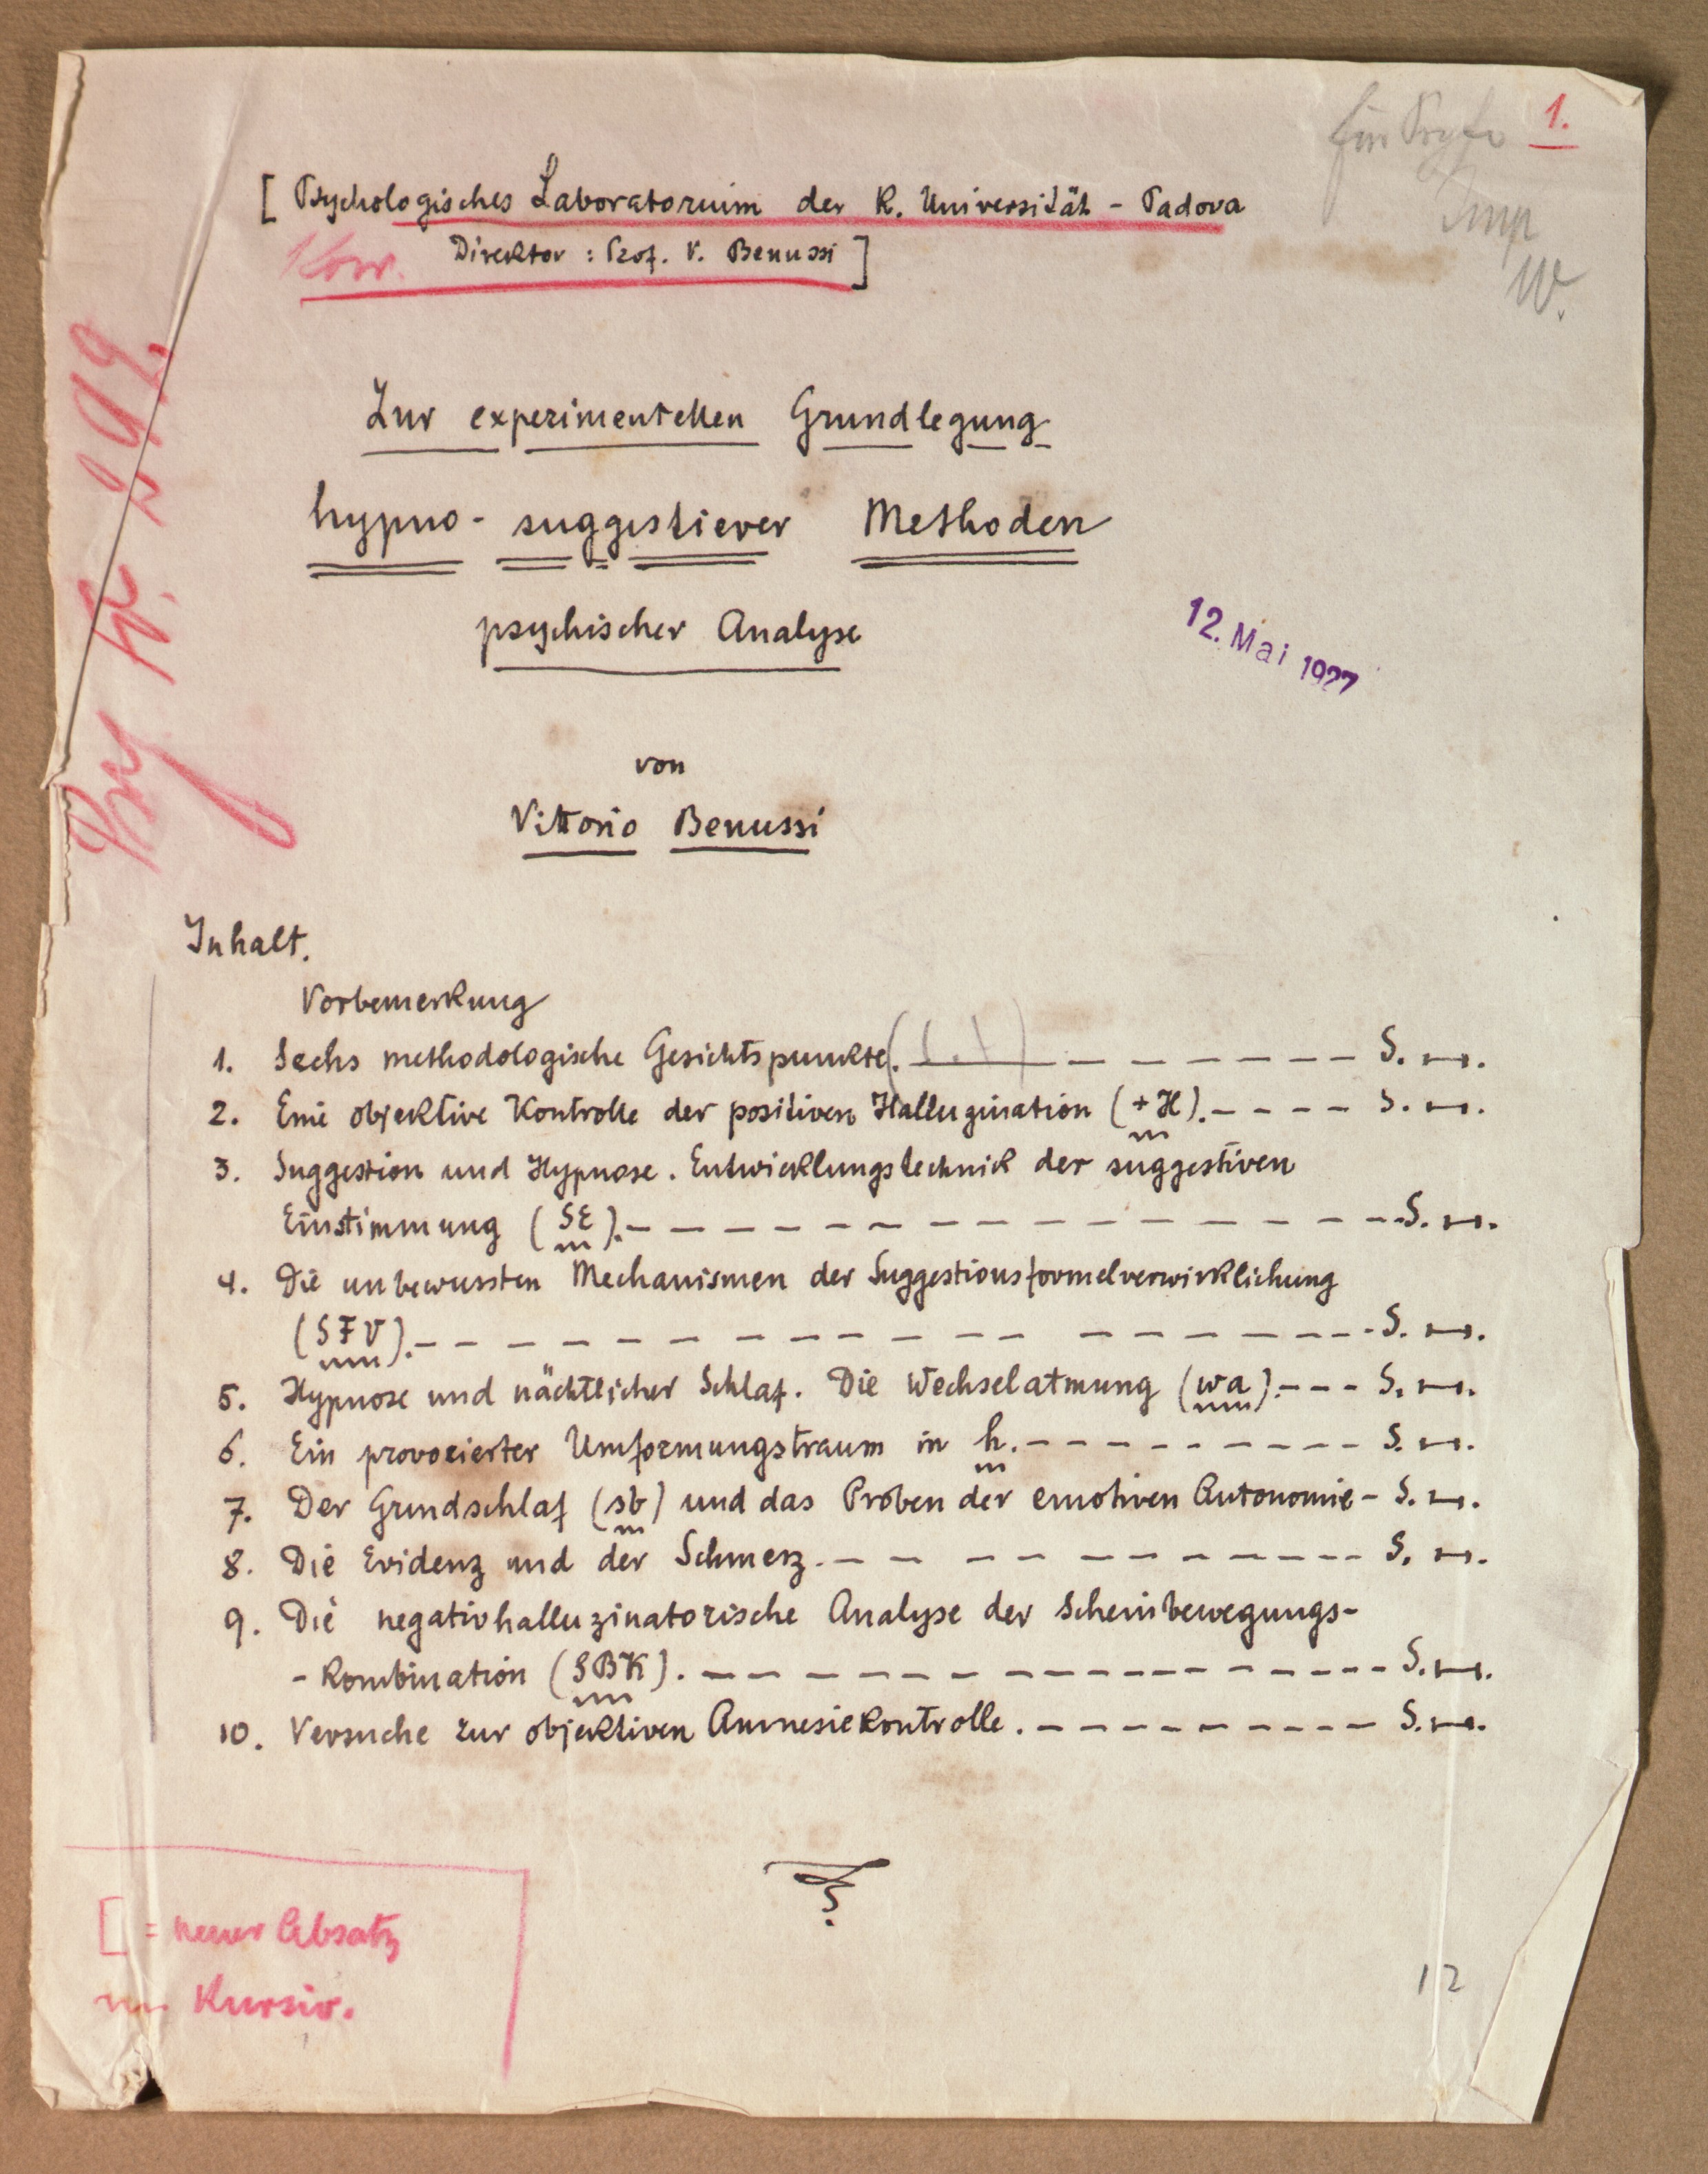 1.
für
[ Psychologisches Laboratorium der K. Universität - Padova
Korr. Direktor : Prof. V. Benussi ]
Zur experimentellen Grundlegung
hypno- suggestiver Methoden
psychischer Analyse
12. Mai 1927
von
Vittorio Benussi
Inhalt.
Vorbemerkung
1. Sechs methodologische Gesichtspunkte. — — — — — — — S. —.
2. Eine objektive Kontrolle der positiven Halluzination (+H). – – – – S. —.
3. Suggestion und Hypnose. Entwicklungstechnick der suggestiven
Einstimmung (SE). – – – – – – – – – – – – – – S. —.
4. Die unbewussten Mechanismen der Suggestionsformelverwirklichung
(SFV). – – – – – – – – – – – – – – – – S. —.
5. Hypnose und nächtlicher Schlaf. Die Wechselatmung (wa). – – – S. —.
6. Ein provozierter Umformungstraum in h. – – – – – – – – – S. —.
7. Der Grundschlaf (sb) und das Proben der emotiven Autonomie – S. —.
8. Die Evidenz und der Schmerz. – – – – – – – – – – S. —.
9. Die negativhalluzinatorische Analyse der Scheinbewegungs-
- Kombination (SBK). – – – – – – – – – – – – – S. —.
10. Versuche zur objektiven Amnesiekontrolle. – – – – – – – – – S. —.
[ = neuer Absatz
Kursiv.
12